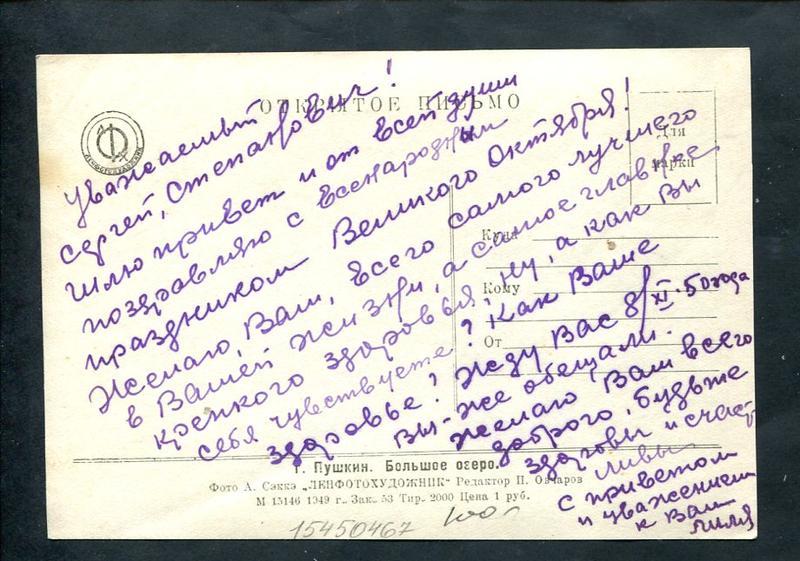 ОТКРЫТОЕ ПИСЬМО
ЛЕНФОТОХУДОЖНИК
Для
марки
Куда
Кому
От
Уважаемый
Сергей, Степанович!
Шлю привет и от всей души
поздравляю с Всенародным
праздником Великого Октября!
Желаю, Вам, всего самого лучшего
в Вашей жизни, а самое главное
крепкого здоровья, ну, а как Вы
себя чувствуете? Как Ваше
здоровье? Жду Вас 8/XI-50 года
Вы-же обещали.
Желаю Вам всего
доброго, будьте
здоровы и счаст
ливы
с приветом
и уважением
к Вам
Лиля
г. Пушкин. Большое озеро.
Фото А. Сэккэ „ЛЕНФОТОХУДОЖНИК“ Редактор П. Овчаров
М 15146 1949 г. Зак. 53 Тир. 2000 Цена 1 руб.
15450467